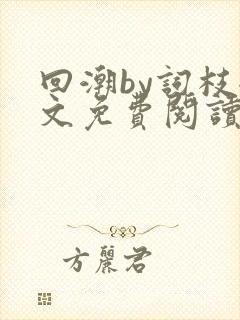 回潮by詞枝
文免費閱讀
方麗君